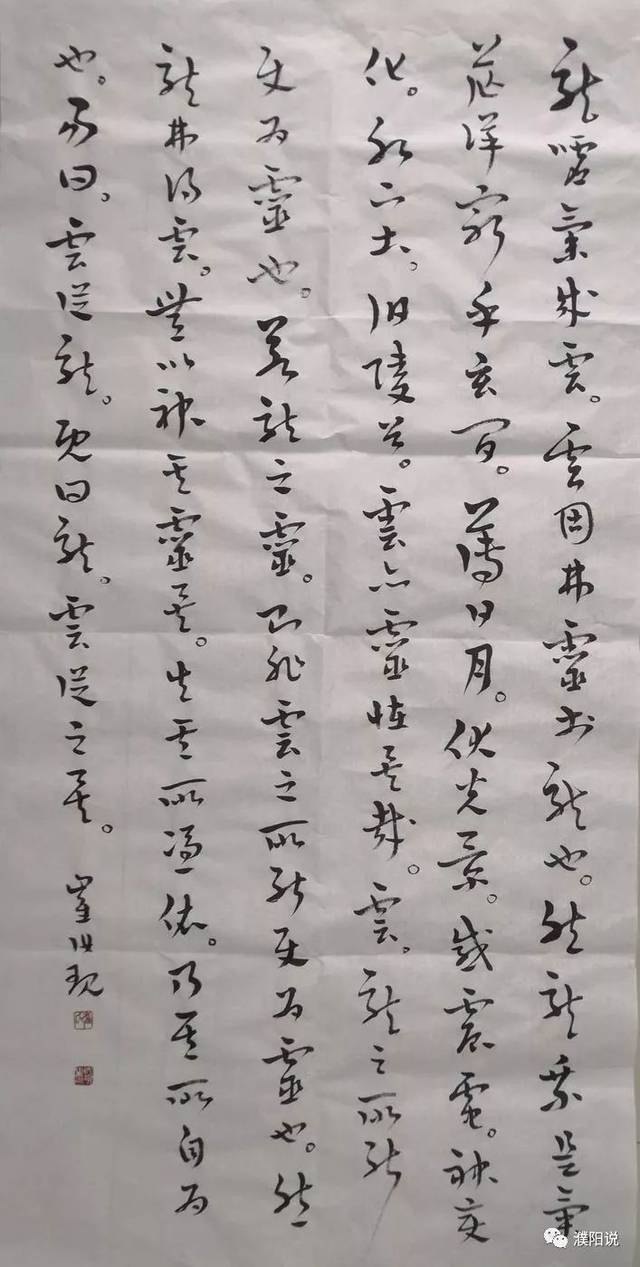 龍噓氣成雲。雲固弗靈於龍也。然龍乘是氣
茫洋窮乎玄間。薄日月。伏光景。感震電。神變
化。水下土。汩陵谷。雲亦靈怪矣哉。雲。龍之所能
使為靈也。若龍之靈。則非雲之所能使為靈也。然
龍弗得雲。無以神其靈矣。失其所馮依。乃其所自為
也。易曰。雲從龍。既曰龍。雲從之矣。
崔
濮阳说